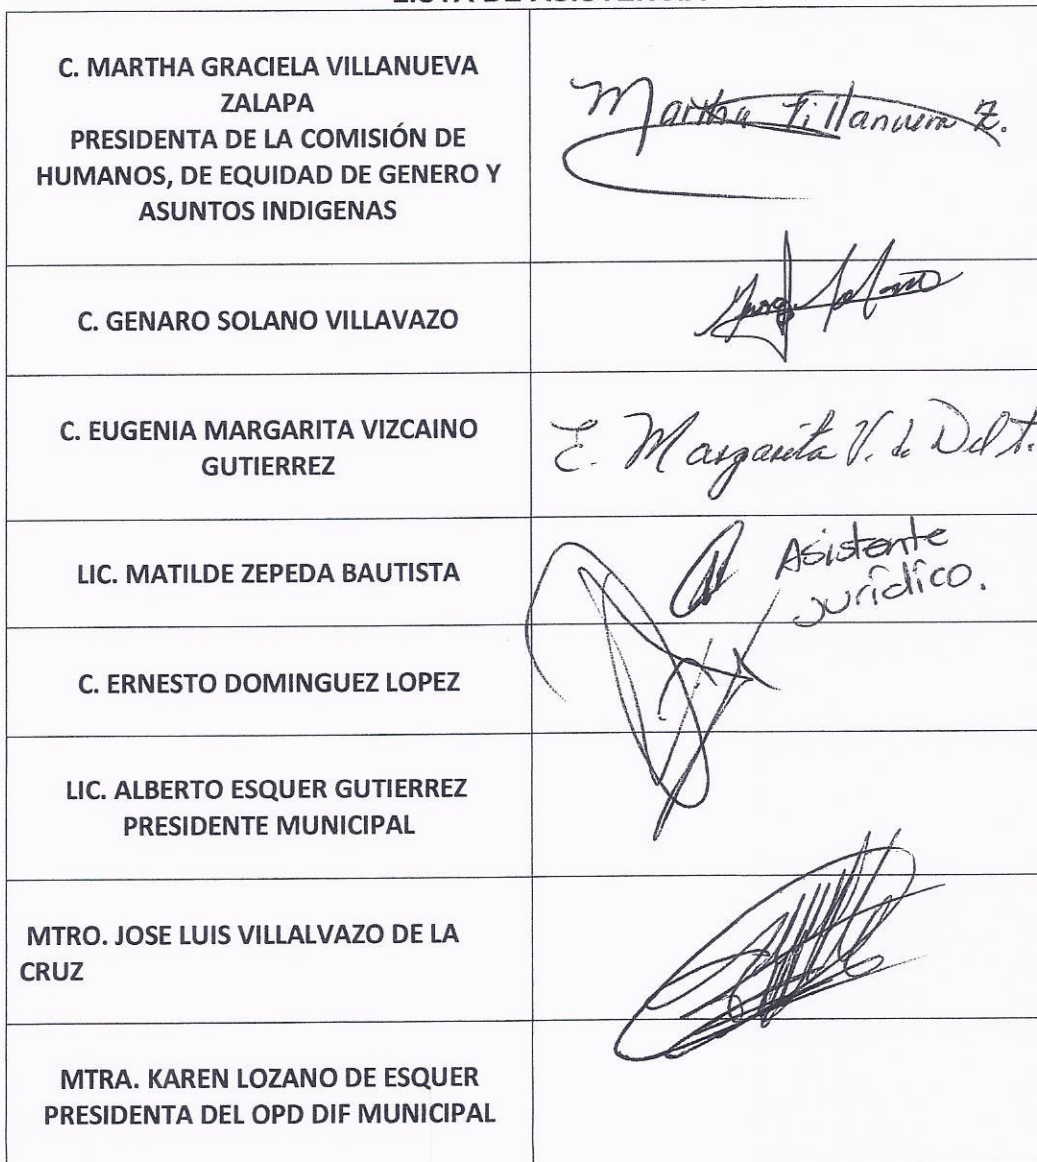 LISTA DE ASISTENCIA
C. MARTHA GRACIELA VILLANUEVA
ZALAPA
PRESIDENTA DE LA COMISIÓN DE
HUMANOS, DE EQUIDAD DE GENERO Y
ASUNTOS INDIGENAS
Martha Villanueva Z.
C. GENARO SOLANO VILLAVAZO
C. EUGENIA MARGARITA VIZCAINO
GUTIERREZ
E. Margarita V. de Del T.
LIC. MATILDE ZEPEDA BAUTISTA
Asistente
jurídico.
C. ERNESTO DOMINGUEZ LOPEZ
LIC. ALBERTO ESQUER GUTIERREZ
PRESIDENTE MUNICIPAL
MTRO. JOSE LUIS VILLALVAZO DE LA
CRUZ
MTRA. KAREN LOZANO DE ESQUER
PRESIDENTA DEL OPD DIF MUNICIPAL